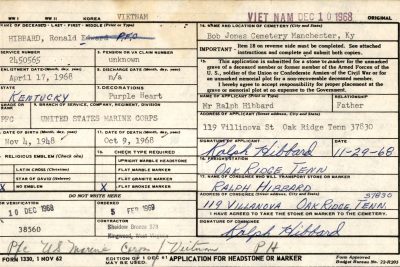 WW I WW II KOREA VIETNAM
VIET NAM DEC 10 1968 ORIGINAL
NAME OF DECEASED - LAST - FIRST - MIDDLE (Print or Type)
HIBBARD, Ronald Edward P.F.C
14. NAME AND LOCATION OF CEMETERY (City and State)
Bob Jones Cemetery Manchester, Ky
IMPORTANT - Item 18 on reverse side must be completed. See attached instructions and complete and submit both copies.
SERVICE NUMBER
2450565
5. PENSION OR VA CLAIM NUMBER
unknown
ENLISTMENT DATE (Month, day, year)
April 17, 1968
DISCHARGE DATE (Month, day, year)
n/a
15. This application is submitted for a stone or marker for the unmarked grave of a deceased member or former member of the Armed Forces of the U.S., soldier of the Union or Confederate Armies of the Civil War or for an unmarked memorial plot for a non-recoverable deceased member.
I hereby agree to accept responsibility for proper placement at grave or memorial plot at no expense to the Government.
STATE
KENTUCKY
DECORATIONS
Purple Heart
NAME OF APPLICANT (Print or Type)
Mr Ralph Hibbard
RELATIONSHIP
Father
GRADE
PFC
BRANCH OF SERVICE, COMPANY, REGIMENT, DIVISION
UNITED STATES MARINE CORPS
ADDRESS OF APPLICANT
119 Villinova St Oak Ridge Tenn 37830
DATE OF BIRTH (Month, day, year)
Nov 4, 1948
DATE OF DEATH (Month, day, year)
Oct 9, 1968
SIGNATURE OF APPLICANT
Ralph Hibbard
DATE
11-29-68
RELIGIOUS EMBLEM (Check one)
LATIN CROSS (Christian)
STAR OF DAVID (Hebrew)
X NO EMBLEM
CHECK TYPE REQUIRED
UPRIGHT MARBLE HEADSTONE
FLAT MARBLE MARKER
X FLAT GRANITE MARKER
FLAT BRONZE MARKER
16. FREIGHT STATION
OAK RIDGE TENN
17. NAME OF CONSIGNEE WHO WILL TRANSPORT STONE OR MARKER
RALPH HIBBARD
DO NOT WRITE HERE
ADDRESS OF CONSIGNEE
37830
119 VILLANOVA OAK RIDGE TENN.
10 DEC 1968
ORDERED
5 FEB 1969
I HAVE AGREED TO TAKE THE STONE OR MARKER TO THE CEMETERY.
38560
SIGNATURE OF CONSIGNEE
Ralph Hibbard
Pfc US Marine Corps / Vietnam PH
FORM 1330, 1 NOV 62
EDITION OF 1 DEC 61 MAY BE USED.
APPLICATION FOR HEADSTONE OR MARKER
Form Approved
Budget Bureau No.